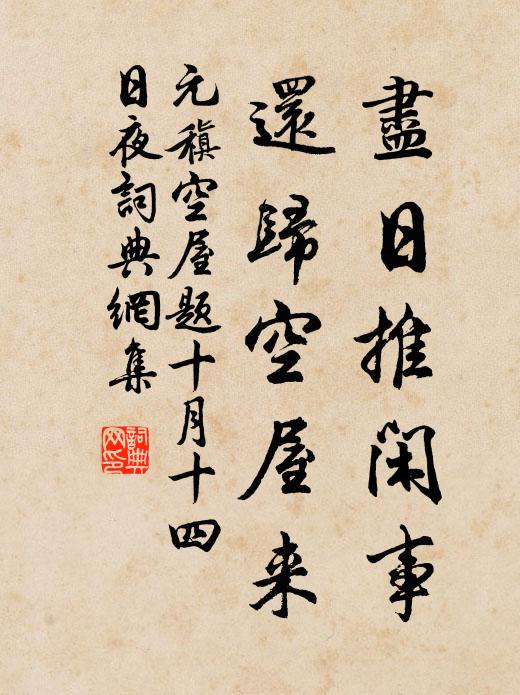 盡日推閑事
還歸空屋来
元稹空屋題十月十四
日夜詞典網集
詞典
网印